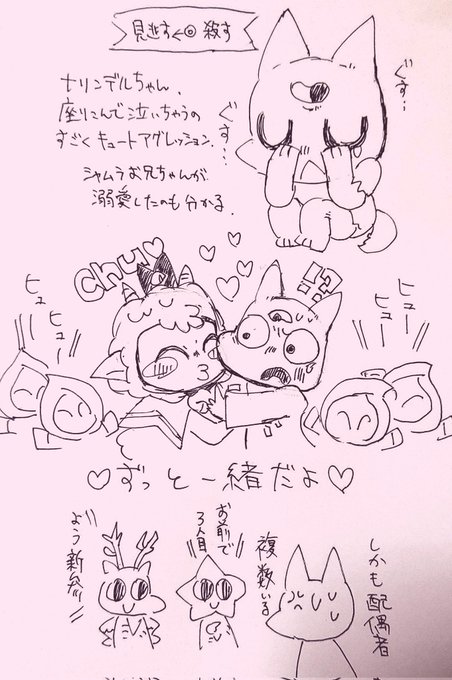 見逃す←◎ 殺す
ナリンデルちゃん、
座りこんで泣いちゃうの
すごくキュートアグレッション。
シャムラお兄ちゃんが
溺愛したのも分かる。
ぐす…
ぐす…
chu♥
!?
ヒュー
ヒュー
ヒュー
ヒュー
♡ずっと一緒だよ♡
しかも配偶者
複数いる
お前で
3人目
よう新参